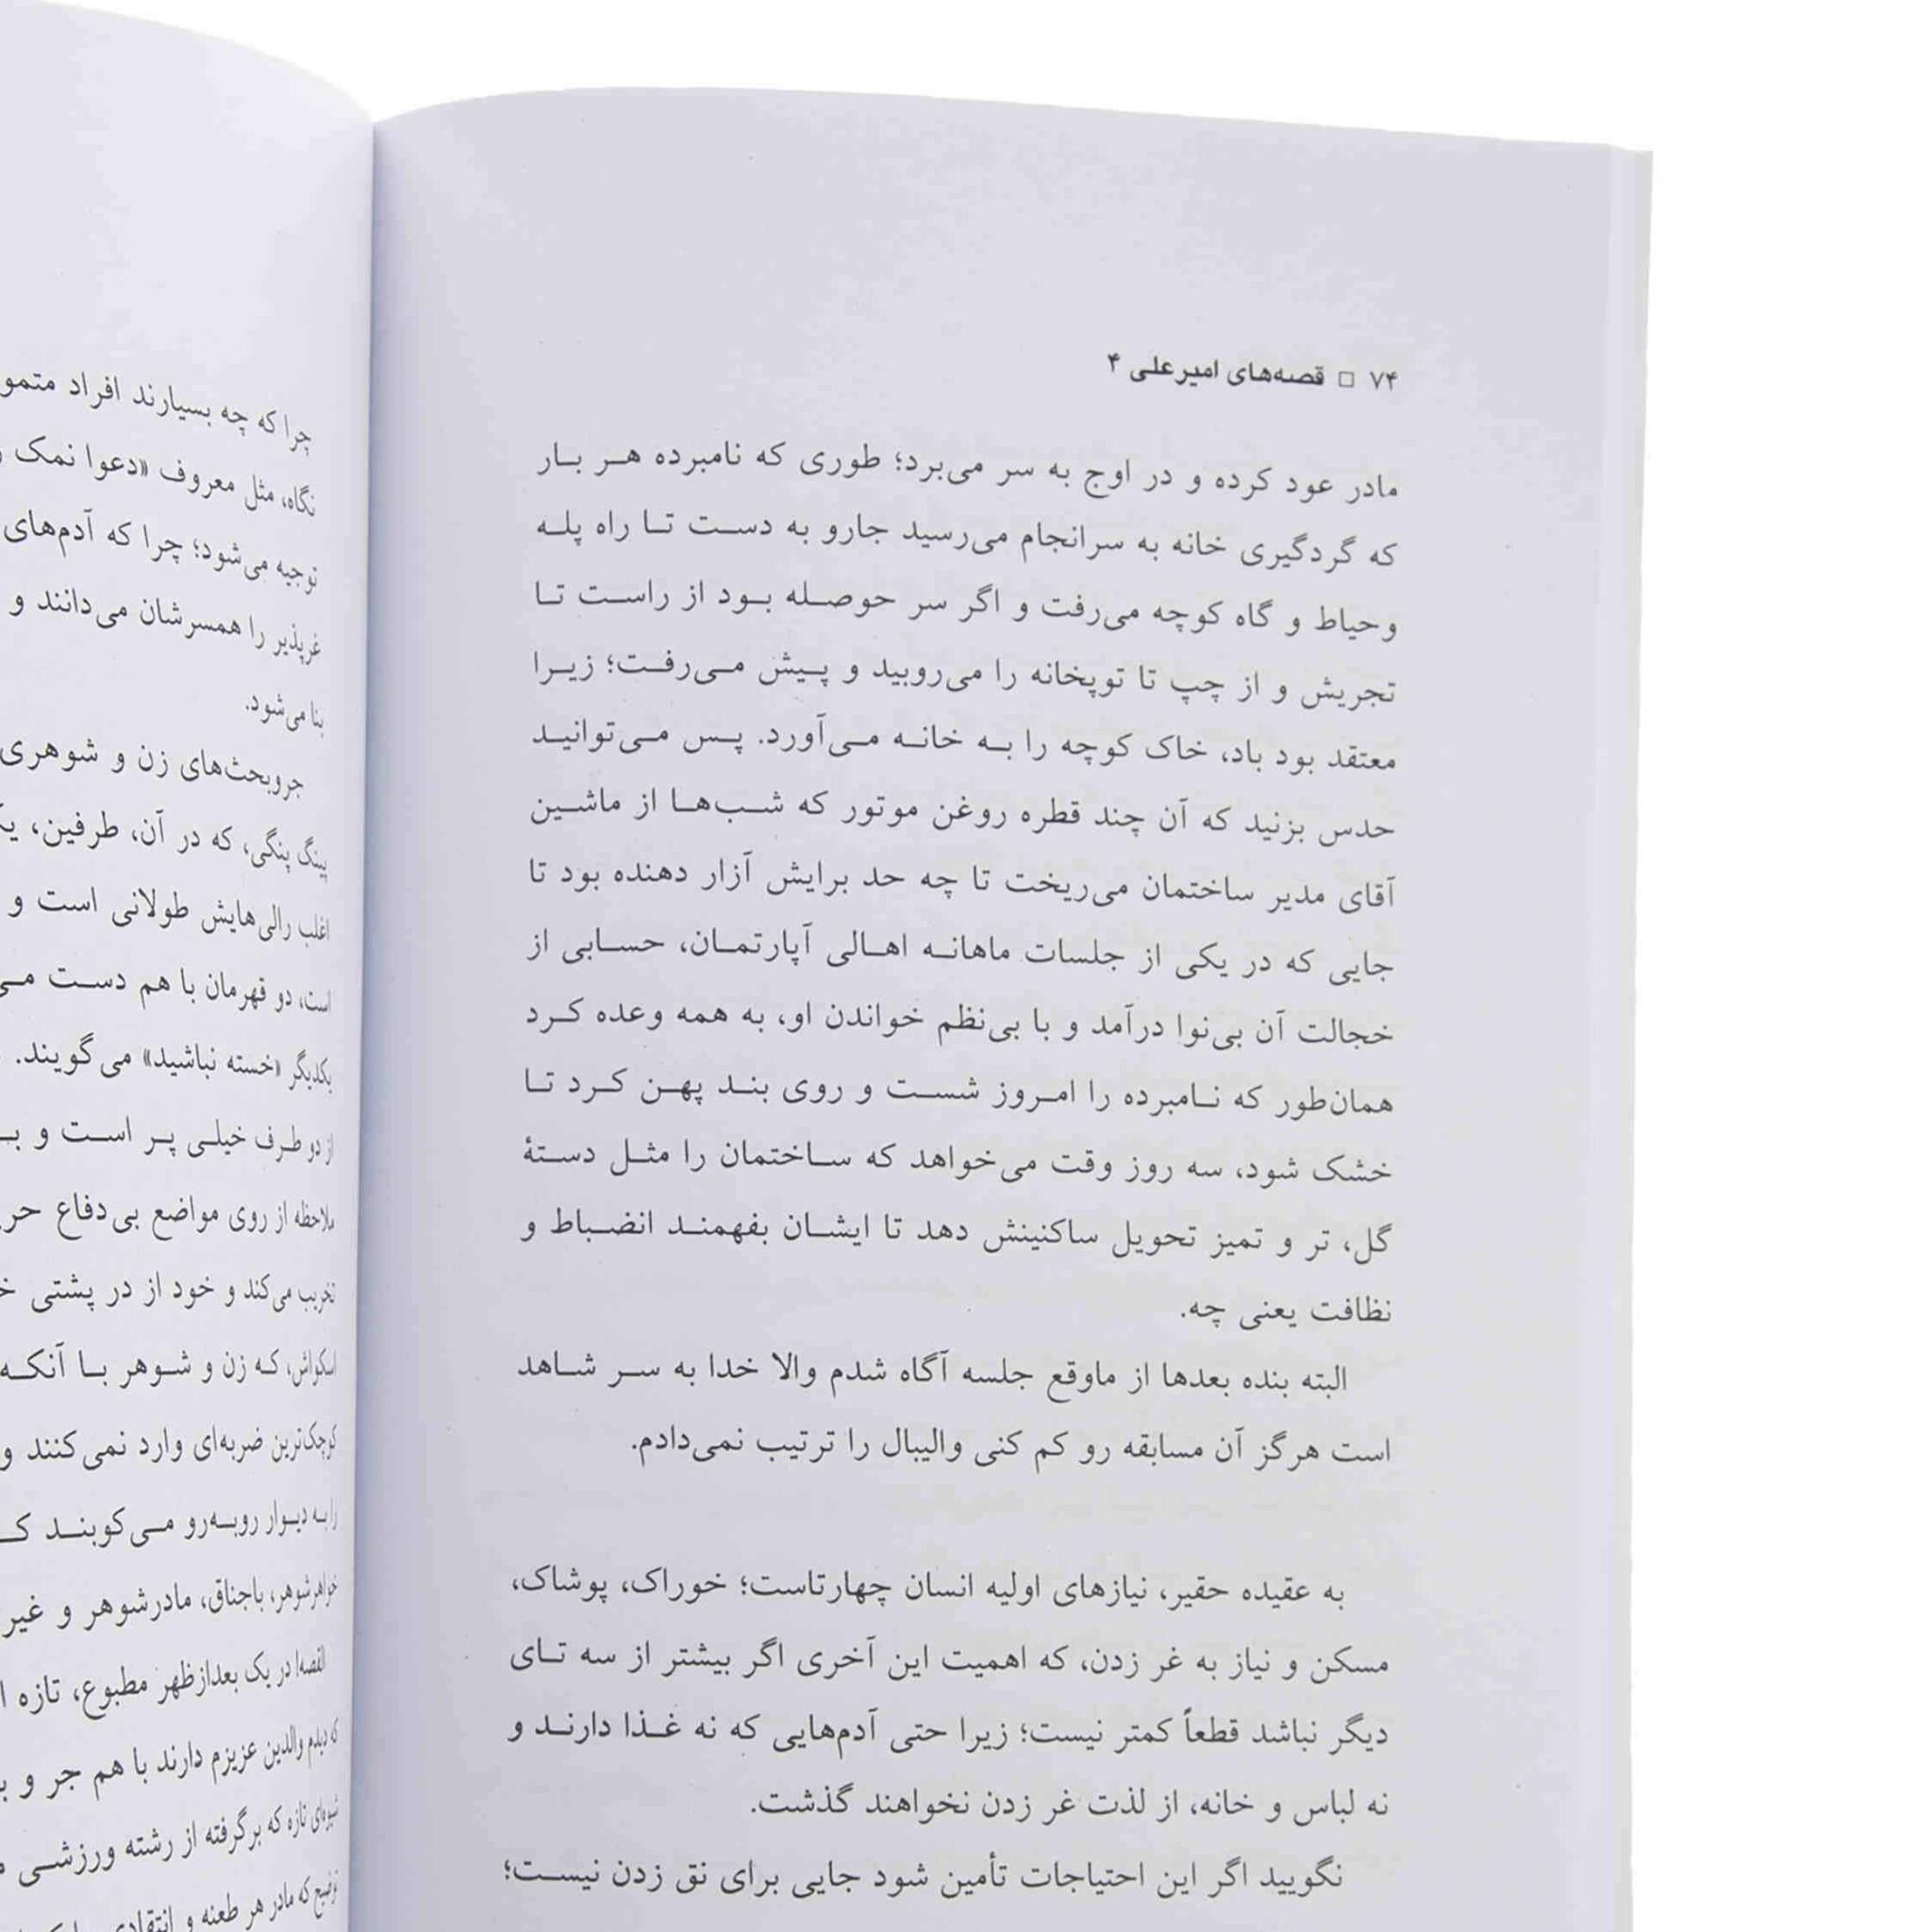 ۷۴ □ قصه‌های امیرعلی ۴
مادر عود کرده و در اوج به سر می‌برد؛ طوری که نامبرده هر بار
که گردگیری خانه به سرانجام می‌رسید جارو به دست تا راه پله
وحیاط و گاه کوچه می‌رفت و اگر سر حوصله بود از راست تا
تجریش و از چپ تا توپخانه را می‌روبید و پیش می‌رفت؛ زیرا
معتقد بود باد، خاک کوچه را به خانه می‌آورد. پس می‌توانید
حدس بزنید که آن چند قطره روغن موتور که شب‌ها از ماشین
آقای مدیر ساختمان می‌ریخت تا چه حد برایش آزار دهنده بود تا
جایی که در یکی از جلسات ماهانه اهالی آپارتمان، حسابی از
خجالت آن بی‌نوا درآمد و با بی‌نظم خواندن او، به همه وعده کرد
همان‌طور که نامبرده را امروز شست و روی بند پهن کرد تا
خشک شود، سه روز وقت می‌خواهد که ساختمان را مثل دستهٔ
گل، تر و تمیز تحویل ساکنینش دهد تا ایشان بفهمند انضباط و
نظافت یعنی چه.
البته بنده بعدها از ماوقع جلسه آگاه شدم والا خدا به سر شاهد
است هرگز آن مسابقه رو کم کنی والیبال را ترتیب نمی‌دادم.
به عقیده حقیر، نیازهای اولیه انسان چهارتاست؛ خوراک، پوشاک،
مسکن و نیاز به غر زدن، که اهمیت این آخری اگر بیشتر از سه تای
دیگر نباشد قطعاً کمتر نیست؛ زیرا حتی آدم‌هایی که نه غذا دارند و
نه لباس و خانه، از لذت غر زدن نخواهند گذشت.
نگویید اگر این احتیاجات تأمین شود جایی برای نق زدن نیست؛
چرا که چه بسیارند افراد
نگاه، مثل معروف «دعوا نمک
توجیه می‌شود؛ چرا که آدم‌های
غرپذیر را همسرشان می‌دانند و
بنا می‌شود.
جروبحث‌های زن و شوهری
پینگ پنگی، که در آن، طرفین،
اغلب رالی‌هایش طولانی است و
است، دو قهرمان با هم دست
یکدیگر «خسته نباشید» می‌گویند.
از دو طرف خیلی پر است و
ملاحظه از روی مواضع بی‌دفاع
تخریب می‌کند و خود از در پشتی
اسکواش، که زن و شوهر با آنکه
کوچک‌ترین ضربه‌ای وارد نمی‌کنند و
را به دیوار روبه‌رو می‌کوبند
خواهرشوهر، باجناق، مادرشوهر و
القصه! در یک بعدازظهر مطبوع، تازه
که دیدم والدین عزیزم دارند با هم جر و
شیوه‌ای تازه که برگرفته از رشته ورزشی
توضیح که مادر هر طعنه و